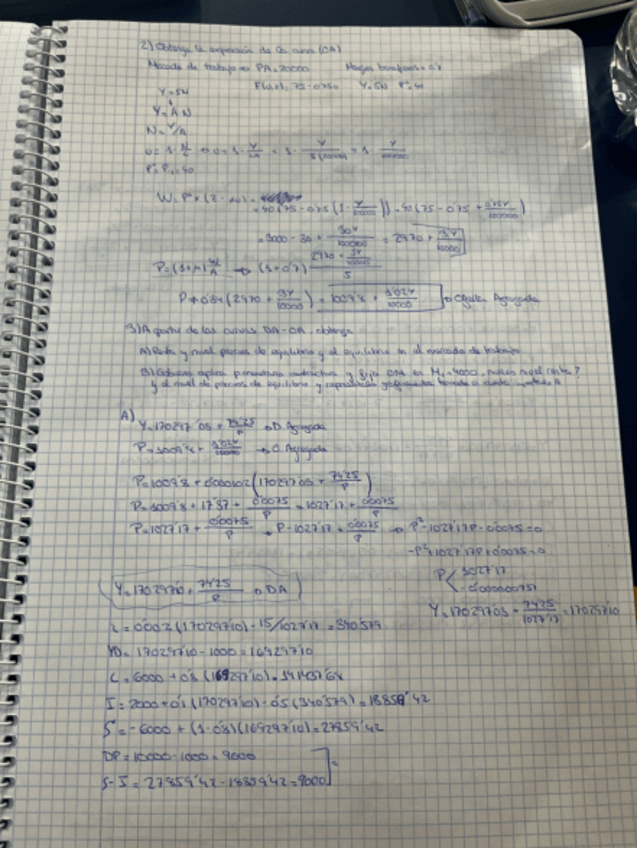 2) Obtenga la expresión de la curva (OA)
Mercado de trabajo → PA = 20000 Margen beneficios = 0'7
Y = 5N F(u,z): 75 - 0'75u Y = 5N Pe = 40
Y = A N
N = Y/A
u = 1 - N/L → u = 1 - Y/LA = 1 - Y/5(20000) = 1 - Y/100000
Pe = P-1 = 40
W = Pe × (Z - u) = 40(75 - 0'75(1 - Y/100000)) = 40(75 - 0'75 + 0'75Y/100000)
= 3000 - 30 + 30Y/100000 = 2970 + 3Y/10000
P = (1+μ) W/A → (1+0'7) (2970 + 3Y/10000)/5
P = 0'34 (2970 + 3Y/10000) = 1009'8 + 1'02Y/10000 → Oferta Agregada
3) A partir de las curvas DA-OA, obtenga
A) Renta y nivel precios de equilibrio y el equilibrio en el mercado de trabajo
A)
Y = 170297'03 + 74'25/P → D. Agregada
P = 1009'8 + 1'02Y/10000 → O. Agregada
P = 1009'8 + 0'000102 (170297'03 + 74'25/P)
P = 1009'8 + 17'37 + 0'0075/P = 1027'17 + 0'0075/P
P = 1027'17 + 0'0075/P → P - 1027'17 = 0'0075/P → P² - 1027'17P - 0'0075 = 0
-P² + 1027'17P + 0'0075 = 0
P < 1027'17
Y = 170297'03 + 74'25/P → DA
Y = 170297'03 + 74'25/1027'17 = 170297'10
i = 0'002 (170297'10) - 15/1027'17 = 340'579
YD = 170297'10 - 1000 = 169297'10
C = 6000 + 0'8 (169297'10) = 141437'68
I = 2000 + 0'1 (170297'10) - 0'5 (340'579) = 18859'42
S = -6000 + (1 - 0'8)(169297'10) = 27859'42
DP = 10000 - 1000 = 9000
S - I = 27859'42 - 18859'42 = 9000